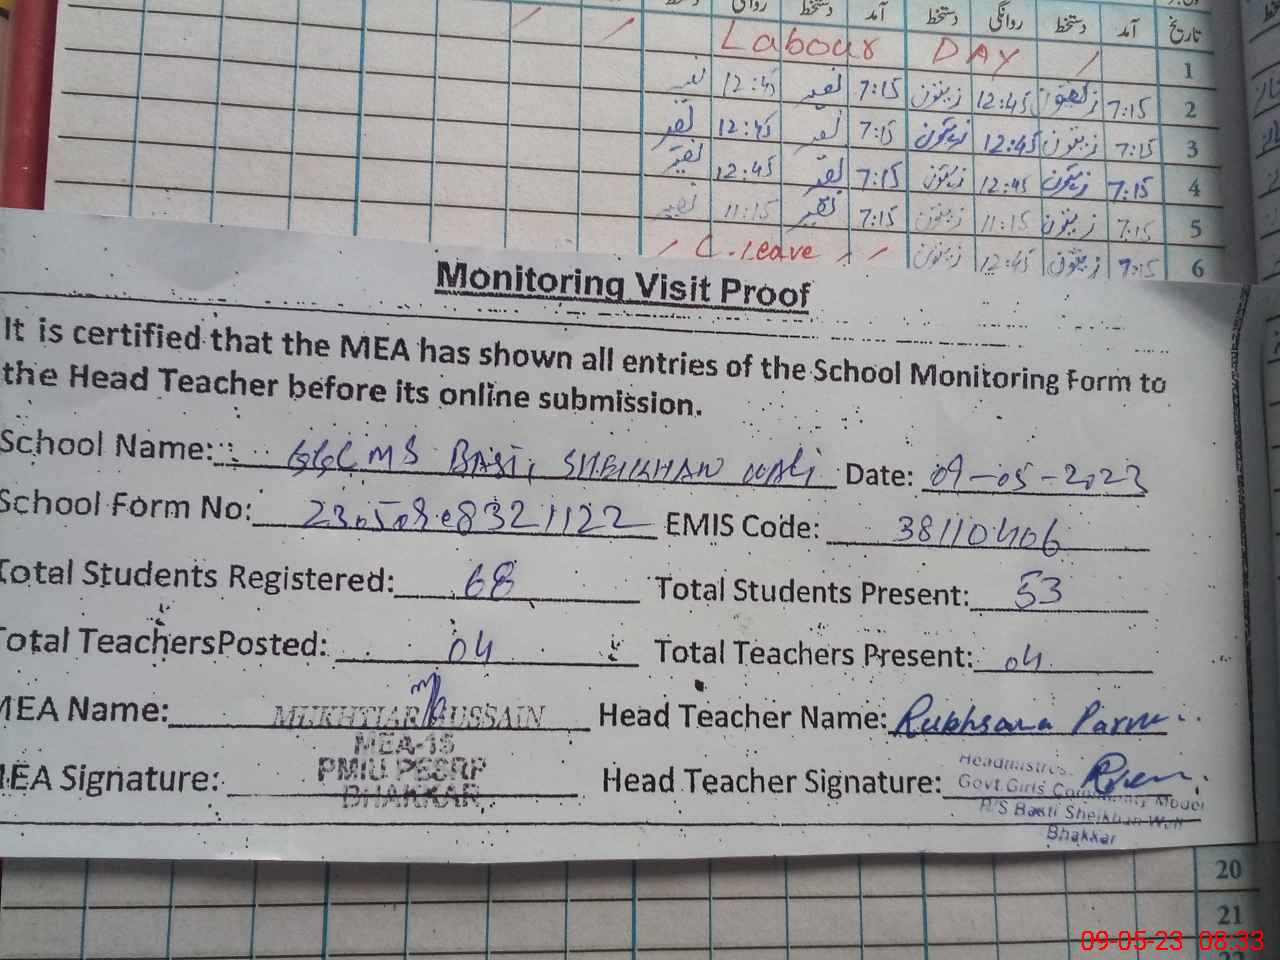 تاریخ آمد دستخط روانگی دستخط آمد دستخط روانگی
1 / Labour DAY / /
2 7:15 زیتون 12:45 زیتون 7:15 12:45
3 7:15 زیتون 12:45 زیتون 7:15 12:45
4 7:15 زیتون 12:45 زیتون 7:15 12:45
5 7:15 زیتون 11:15 زیتون 7:15 11:15
6 7:15 زیتون 12:45 زیتون / / C.leave /
Monitoring Visit Proof
It is certified that the MEA has shown all entries of the School Monitoring Form to
the Head Teacher before its online submission.
School Name: GGCMS BASTI SHEIKHAN WALI Date: 09-05-2023
School Form No: EMIS Code: 38110406
Total Students Registered: 68 Total Students Present: 53
Total TeachersPosted: 04 Total Teachers Present: 04
MEA Name: MUKHTIAR HUSSAIN Head Teacher Name: Rukhsana Parw
MEA-15
PMIU PESRP
BHAKKAR
MEA Signature: Head Teacher Signature:
Headmistres
Govt. Girls Community Model
P/S Basti Sheikhan Wali
Bhakkar
20
21
22
09-05-23 08:33